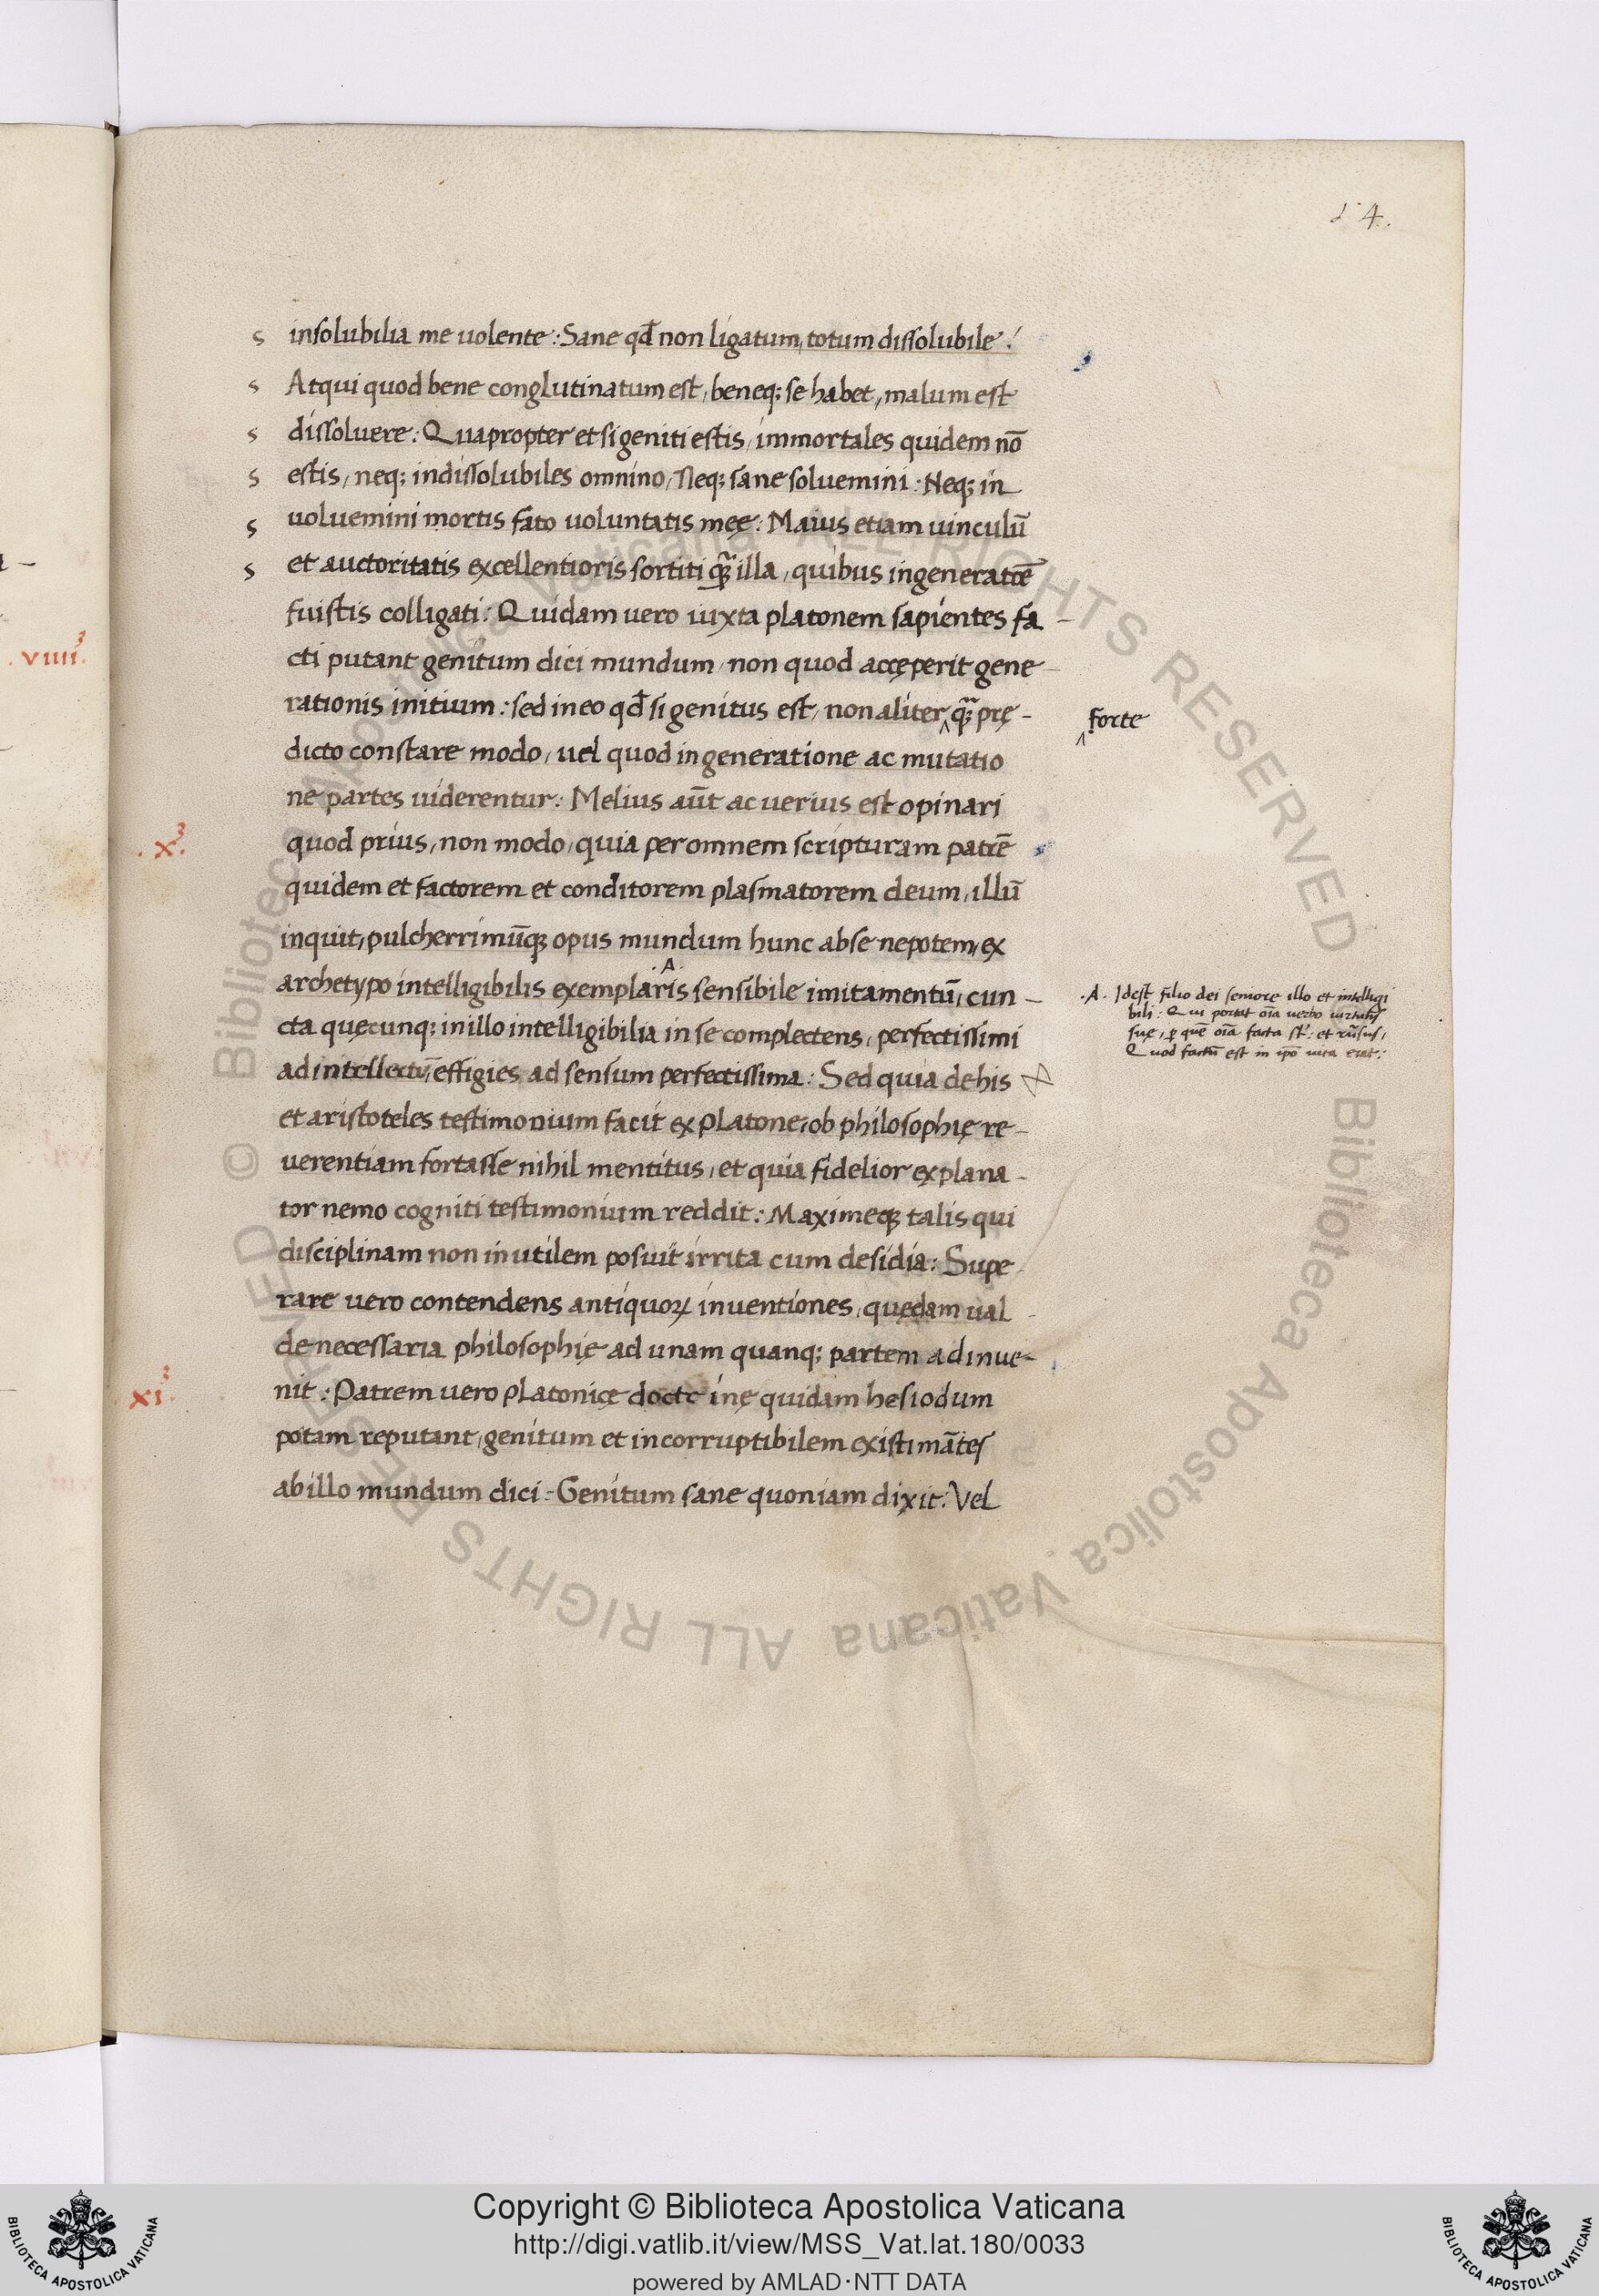 14.
insolubilia me uolente: Sane qđ non ligatum, totum dissolubile:
Atqui quod bene conglutinatum est, beneq; se habet, malum est
dissoluere: Quapropter et si geniti estis, immortales quidem nō
estis, neq; indissolubiles omnino, Neq; sane soluemini: Neq; in
uoluemini mortis fato uoluntatis meę: Maius etiam uinculū
et auctoritatis excellentioris sortiti q̃ illa, quibus in generatiōe
fuistis colligati: Quidam uero iuxta platonem sapientes fa-
.viiii.
cti putant genitum dici mundum, non quod accęperit gene-
rationis initium: sed in eo qđ si genitus est, non aliter ‸ q̃ prę-
‸ forte
dicto constare modo, uel quod in generatione ac mutatio
ne partes uiderentur: Melius aūt ac uerius est opinari
.x.
quod prius, non modo, quia per omnem scripturam patrē
quidem et factorem et conditorem plasmatorem deum, illū
inquit, pulcherrimūq; opus mundum hunc ab se nepotem, ex
archetypo intelligibilis exemplaris .A. sensibile imitamentū, cun-
cta quęcunq; in illo intelligibilia in se complectens, perfectissimi
.A. Idest filio dei seniore illo et intelligi
bili: Qui portat oīa uerbo uirtutis
suę, ꝑ quē oīa facta st: et rūsus,
Quod factū est in ipō uita erat:
ad intellectū, effigies ad sensum perfectissima: Sed quia de his
et aristoteles testimonium facit ex platone, ob philosophię re-
uerentiam fortasse nihil mentitus, et quia fidelior explana-
tor nemo cogniti testimonium reddit: Maximeq; talis qui
disciplinam non inutilem posuit irrita cum desidia: Supe
rare uero contendens antiquoꝝ inuentiones, quędam ual-
de necessaria philosophię ad unam quanq; partem adinue-
.xi.
nit: Patrem uero platonicę doctrinę quidam hesiodum
potam reputant, genitum et incorruptibilem existimātes
ab illo mundum dici: Genitum sane quoniam dixit: Vel
Copyright © Biblioteca Apostolica Vaticana
http://digi.vatlib.it/view/MSS_Vat.lat.180/0033
powered by AMLAD·NTT DATA
BIBLIOTECA APOSTOLICA VATICANA
BIBLIOTECA APOSTOLICA VATICANA